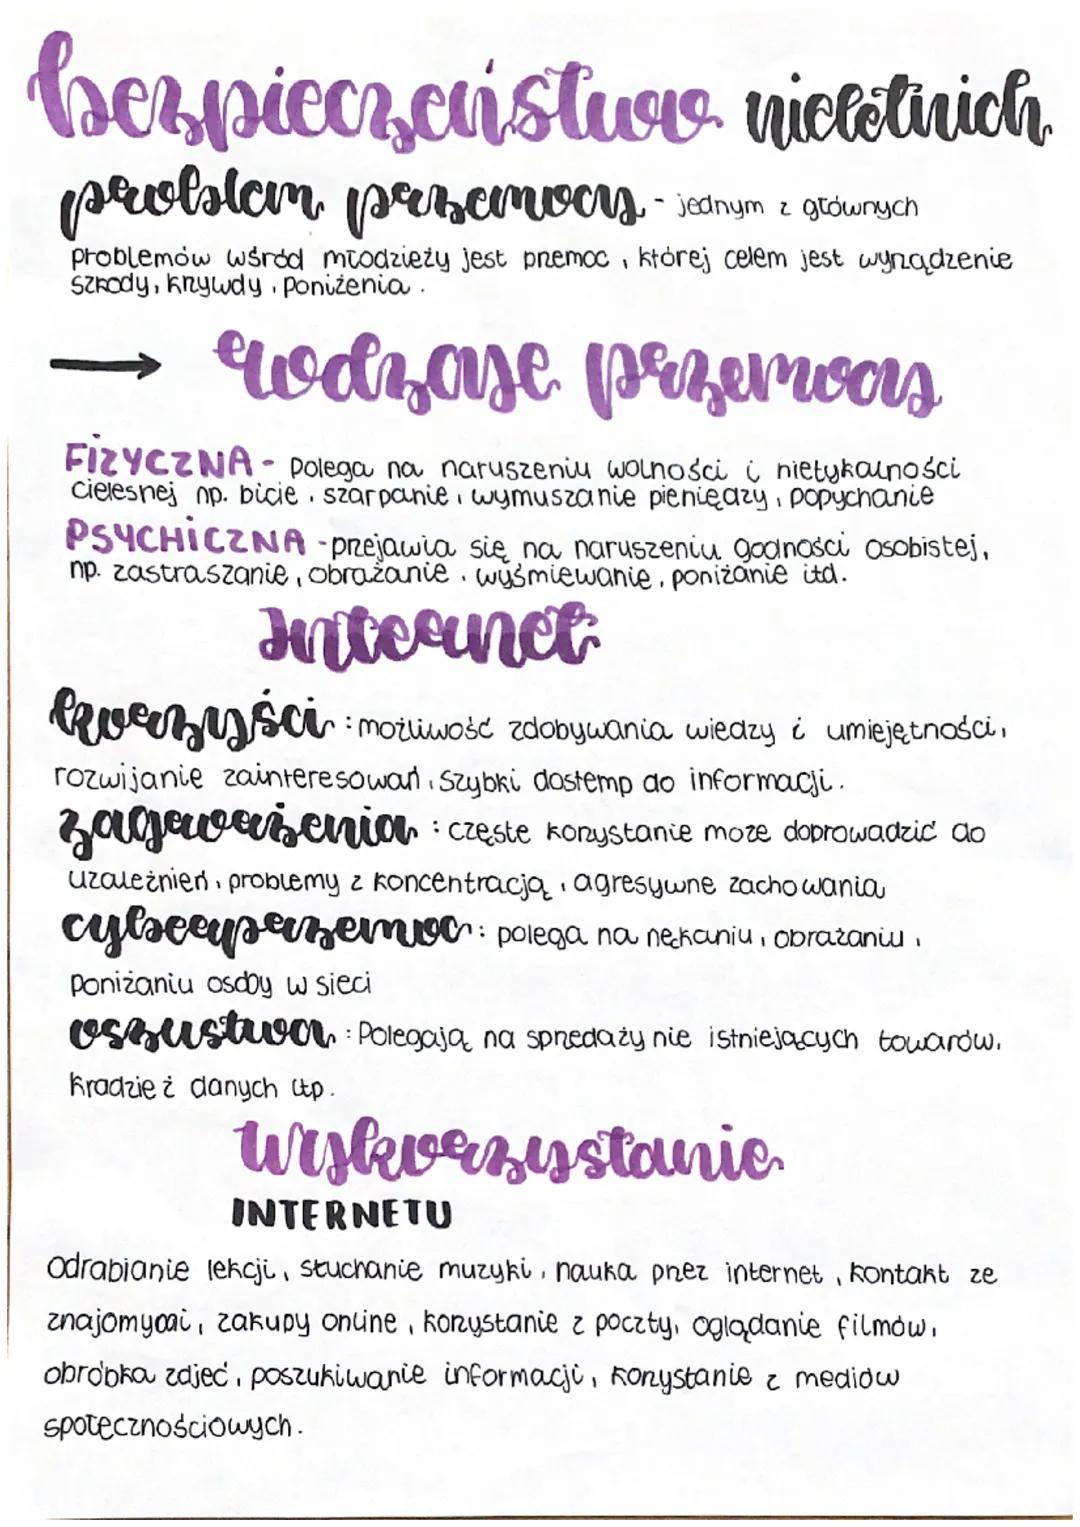 bezpieczeństwo nieletnich
problem przemocy - jednym z głównych
problemów wśród młodzieży jest przemoc, której celem jest wyrządzenie
szkody, krzywdy, poniżenia.
→ rodzaje przemocy
FIZYCZNA - Polega na naruszeniu wolności i nietykalności
cielesnej np. bicie, szarpanie, wymuszanie pieniędzy, popychanie
PSYCHICZNA - przejawia się na naruszeniu godności osobistej,
np. zastraszanie, obrażanie, wyśmiewanie, poniżanie itd.
Internet
korzyści: możliwość zdobywania wiedzy i umiejętności,
rozwijanie zainteresowań, szybki dostemp do informacji.
zagrożenia: częste korzystanie może doprowadzić do
uzależnień, problemy z koncentracją, agresywne zachowania
cyberprzemoc: polega na nękaniu, obrażaniu,
poniżaniu osoby w sieci
oszustwa: Polegają na sprzedaży nie istniejących towarów,
kradzież danych itp.
Wykorzystanie
INTERNETU
Odrabianie lekcji, słuchanie muzyki, nauka przez internet, kontakt ze
znajomymi, zakupy online, korzystanie z poczty, oglądanie filmów,
obróbka zdjeć, poszukiwanie informacji, korzystanie z mediów
społecznościowych.